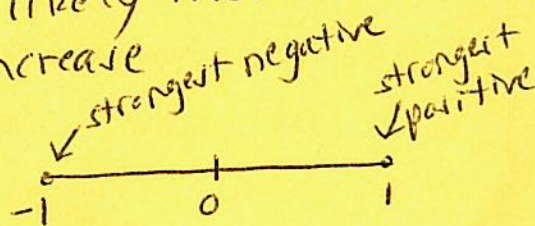 likely
ncrease
strongest negative
strongest
positive
-1 0 1